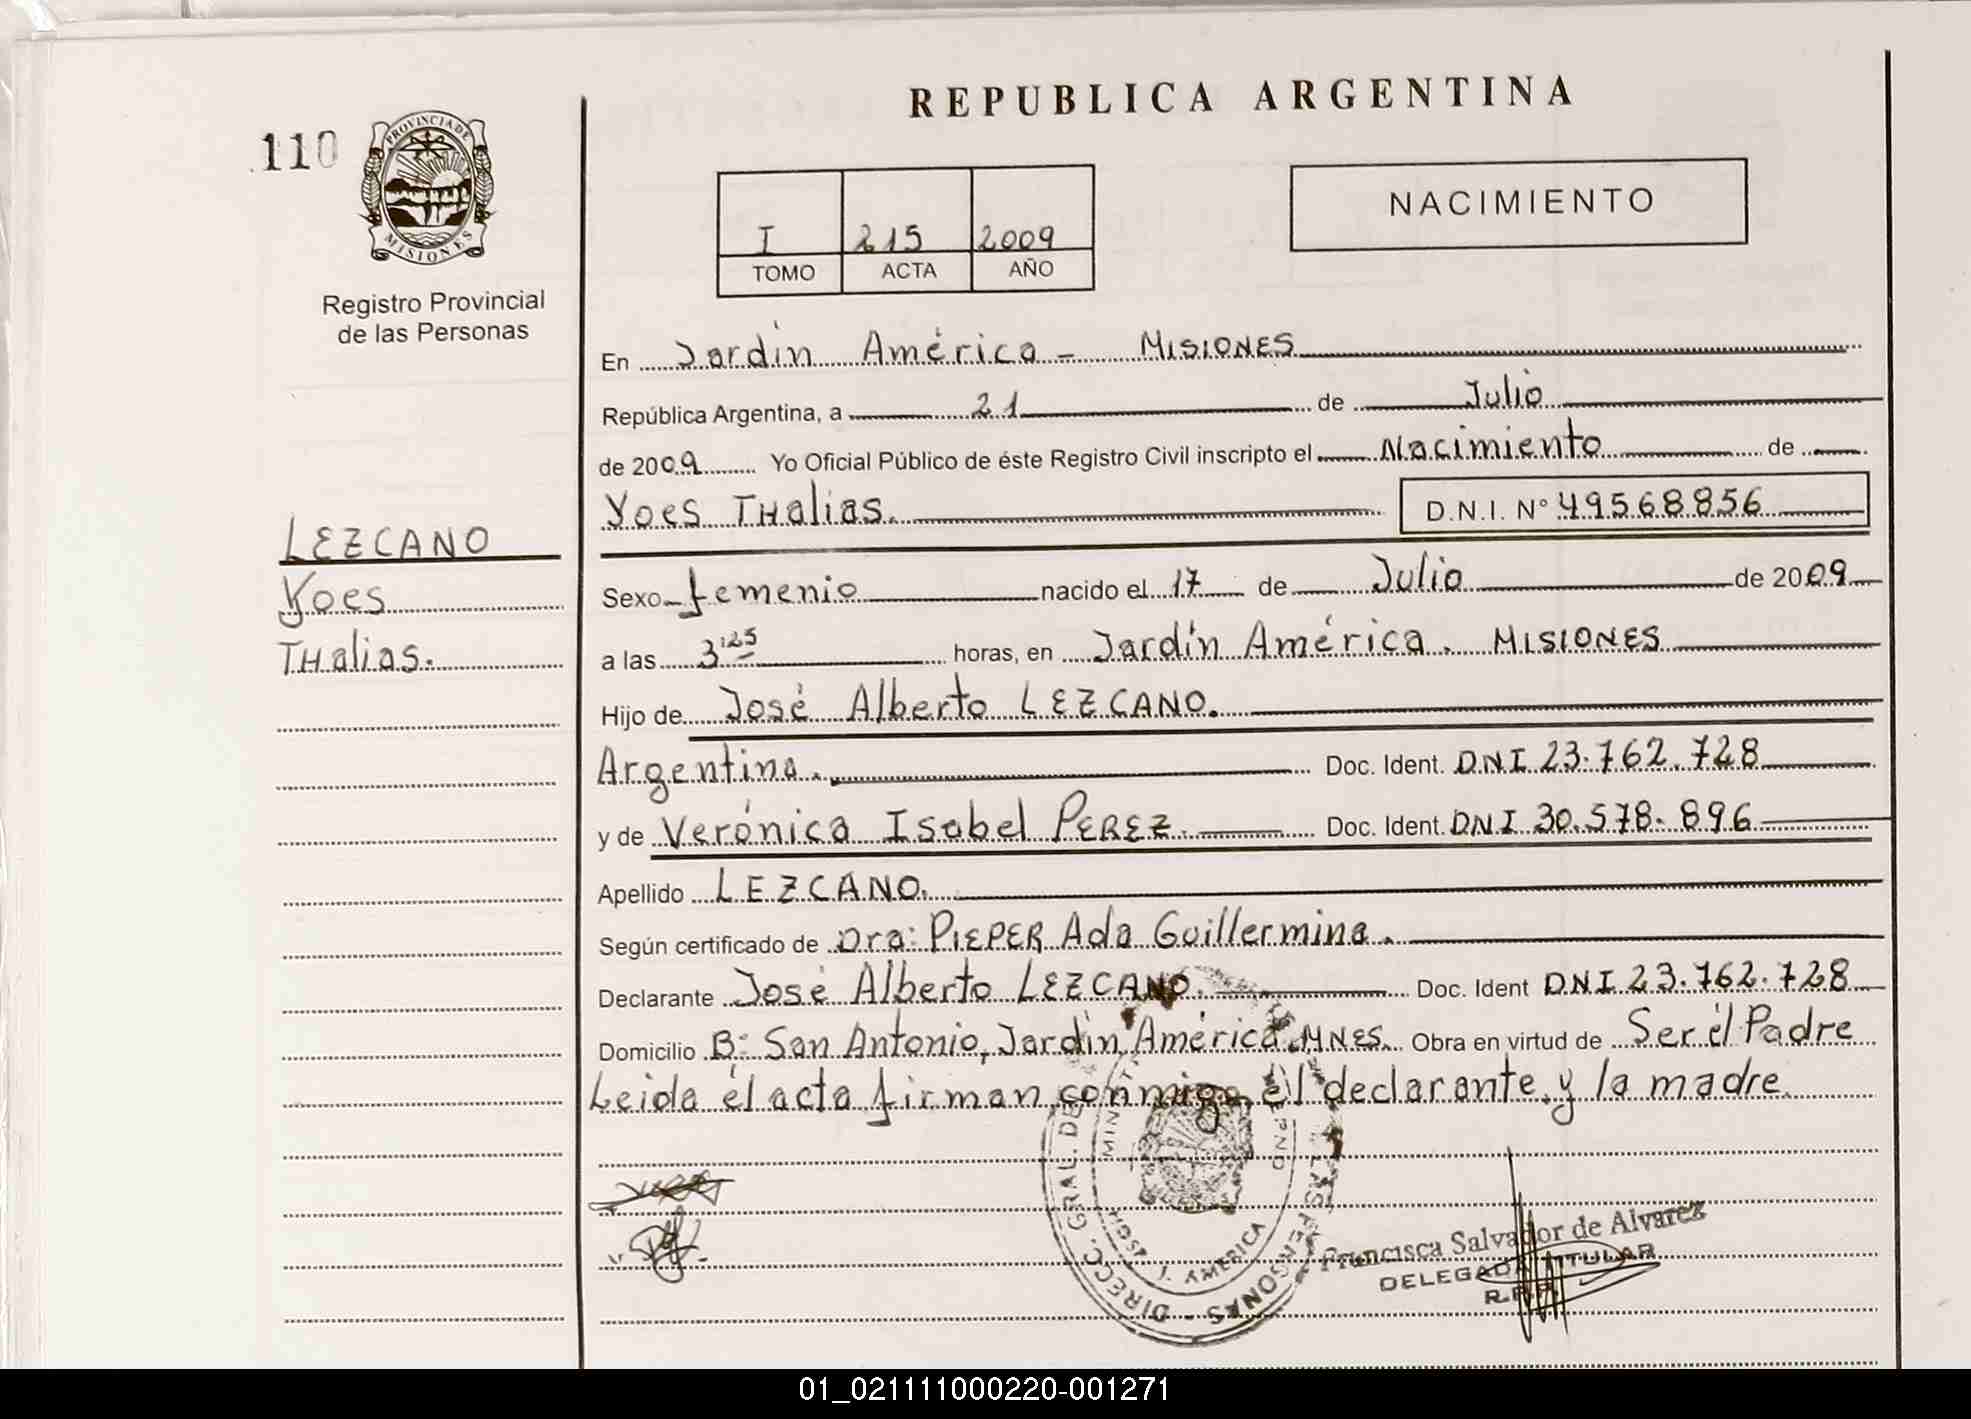 REPUBLICA ARGENTINA
110
PROVINCIA DE
MISIONES
Registro Provincial
de las Personas
I 215 2009
TOMO ACTA AÑO
NACIMIENTO
En Jardín América - MISIONES
República Argentina, a 21 de Julio
de 2009 Yo Oficial Público de éste Registro Civil inscripto el Nacimiento de
Yoes THalias. D.N.I. Nº 49568856
LEZCANO
Yoes
THalias.
Sexo femenio nacido el 17 de Julio de 2009
a las 3:25 horas, en Jardín América. MISIONES
Hijo de José Alberto LEZCANO.
Argentina. Doc. Ident. DNI 23.762.728
y de Verónica Isabel PEREZ. Doc. Ident. DNI 30.578.896
Apellido LEZCANO.
Según certificado de Dra: PIEPER Ada Guillermina.
Declarante José Alberto LEZCANO. Doc. Ident DNI 23.762.728
Domicilio Bº San Antonio, Jardín América MNES. Obra en virtud de Ser él Padre
Leida él acta firman conmigo él declarante y la madre.
DIRECC. GRAL. DE LAS PERSONAS
J. AMERICA
Francisca Salvador de Alvarez
DELEGADA TITULAR
01_021111000220-001271